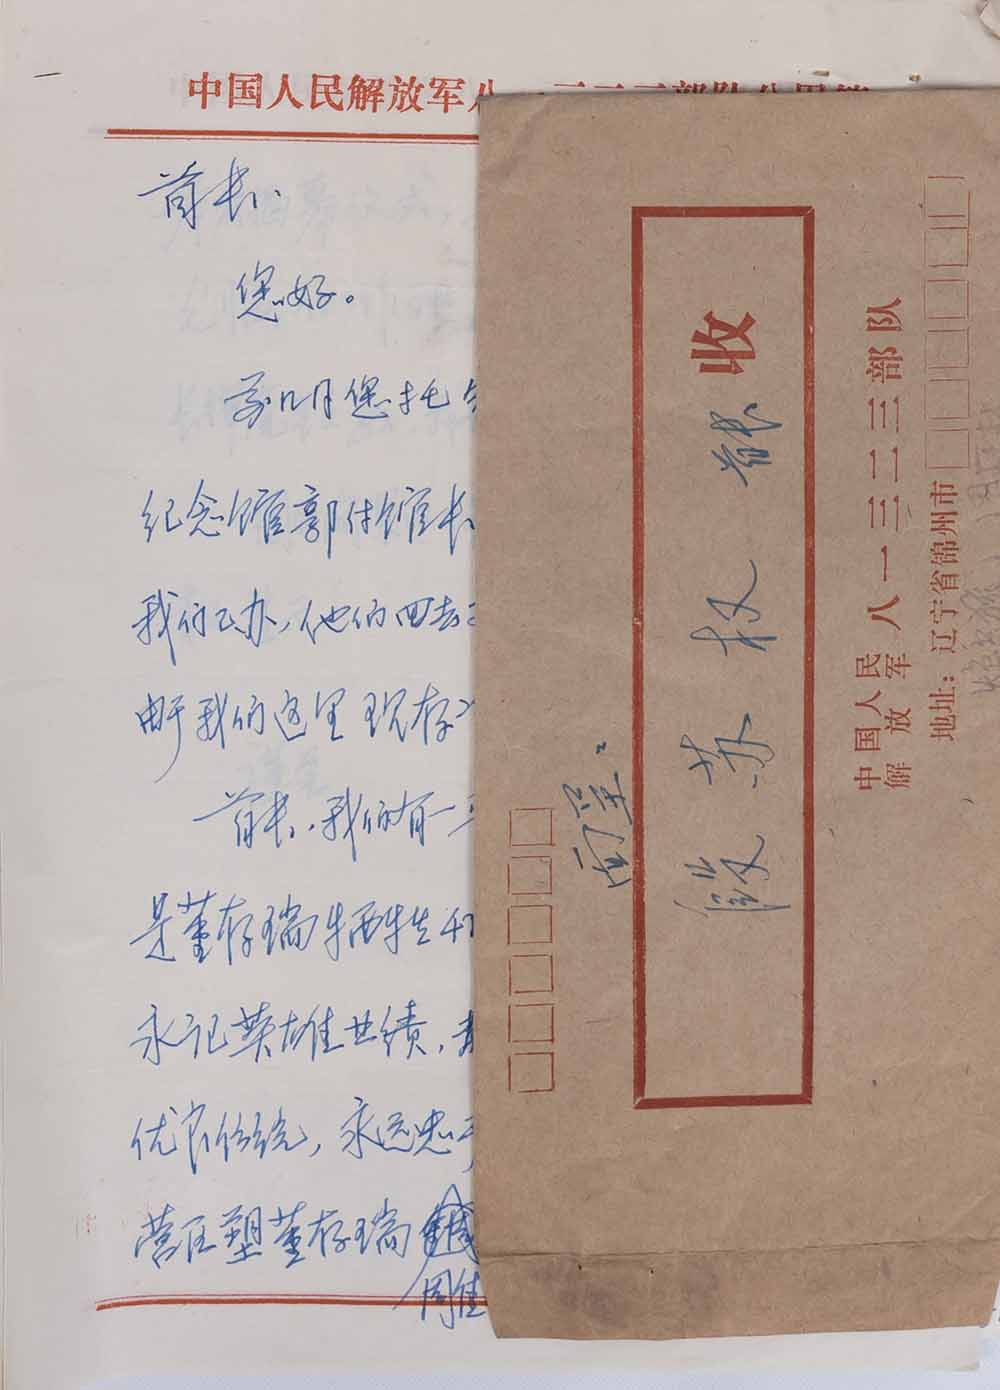 中国人民解放军八一三二二三部队公用笺
首长:
您好。
前几月您托
纪念馆郭付馆长
我们已办,他们回去
由于我们这里现存
首长,我们有一
是董存瑞牺牲
永记英雄业绩,
优良传统,永远忠于
营区塑董存瑞
同佳
面呈:
段苏权 首长
收
中国人民解放军八一三二二三部队
地址:辽宁省锦州市